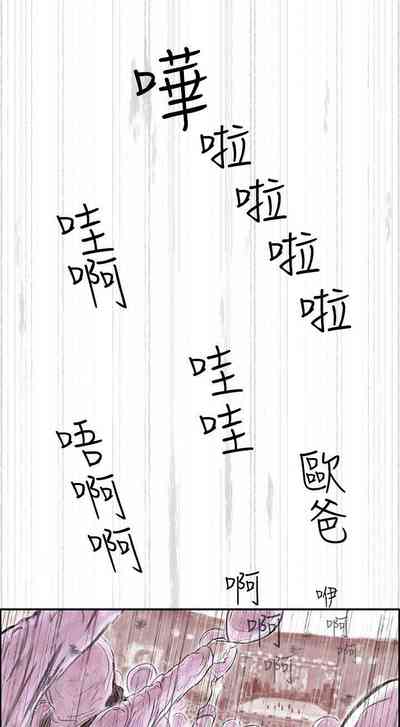 嘩啦啦啦啦
哇啊
哇哇
唔啊啊
歐爸
啊啊啊
咿啊啊